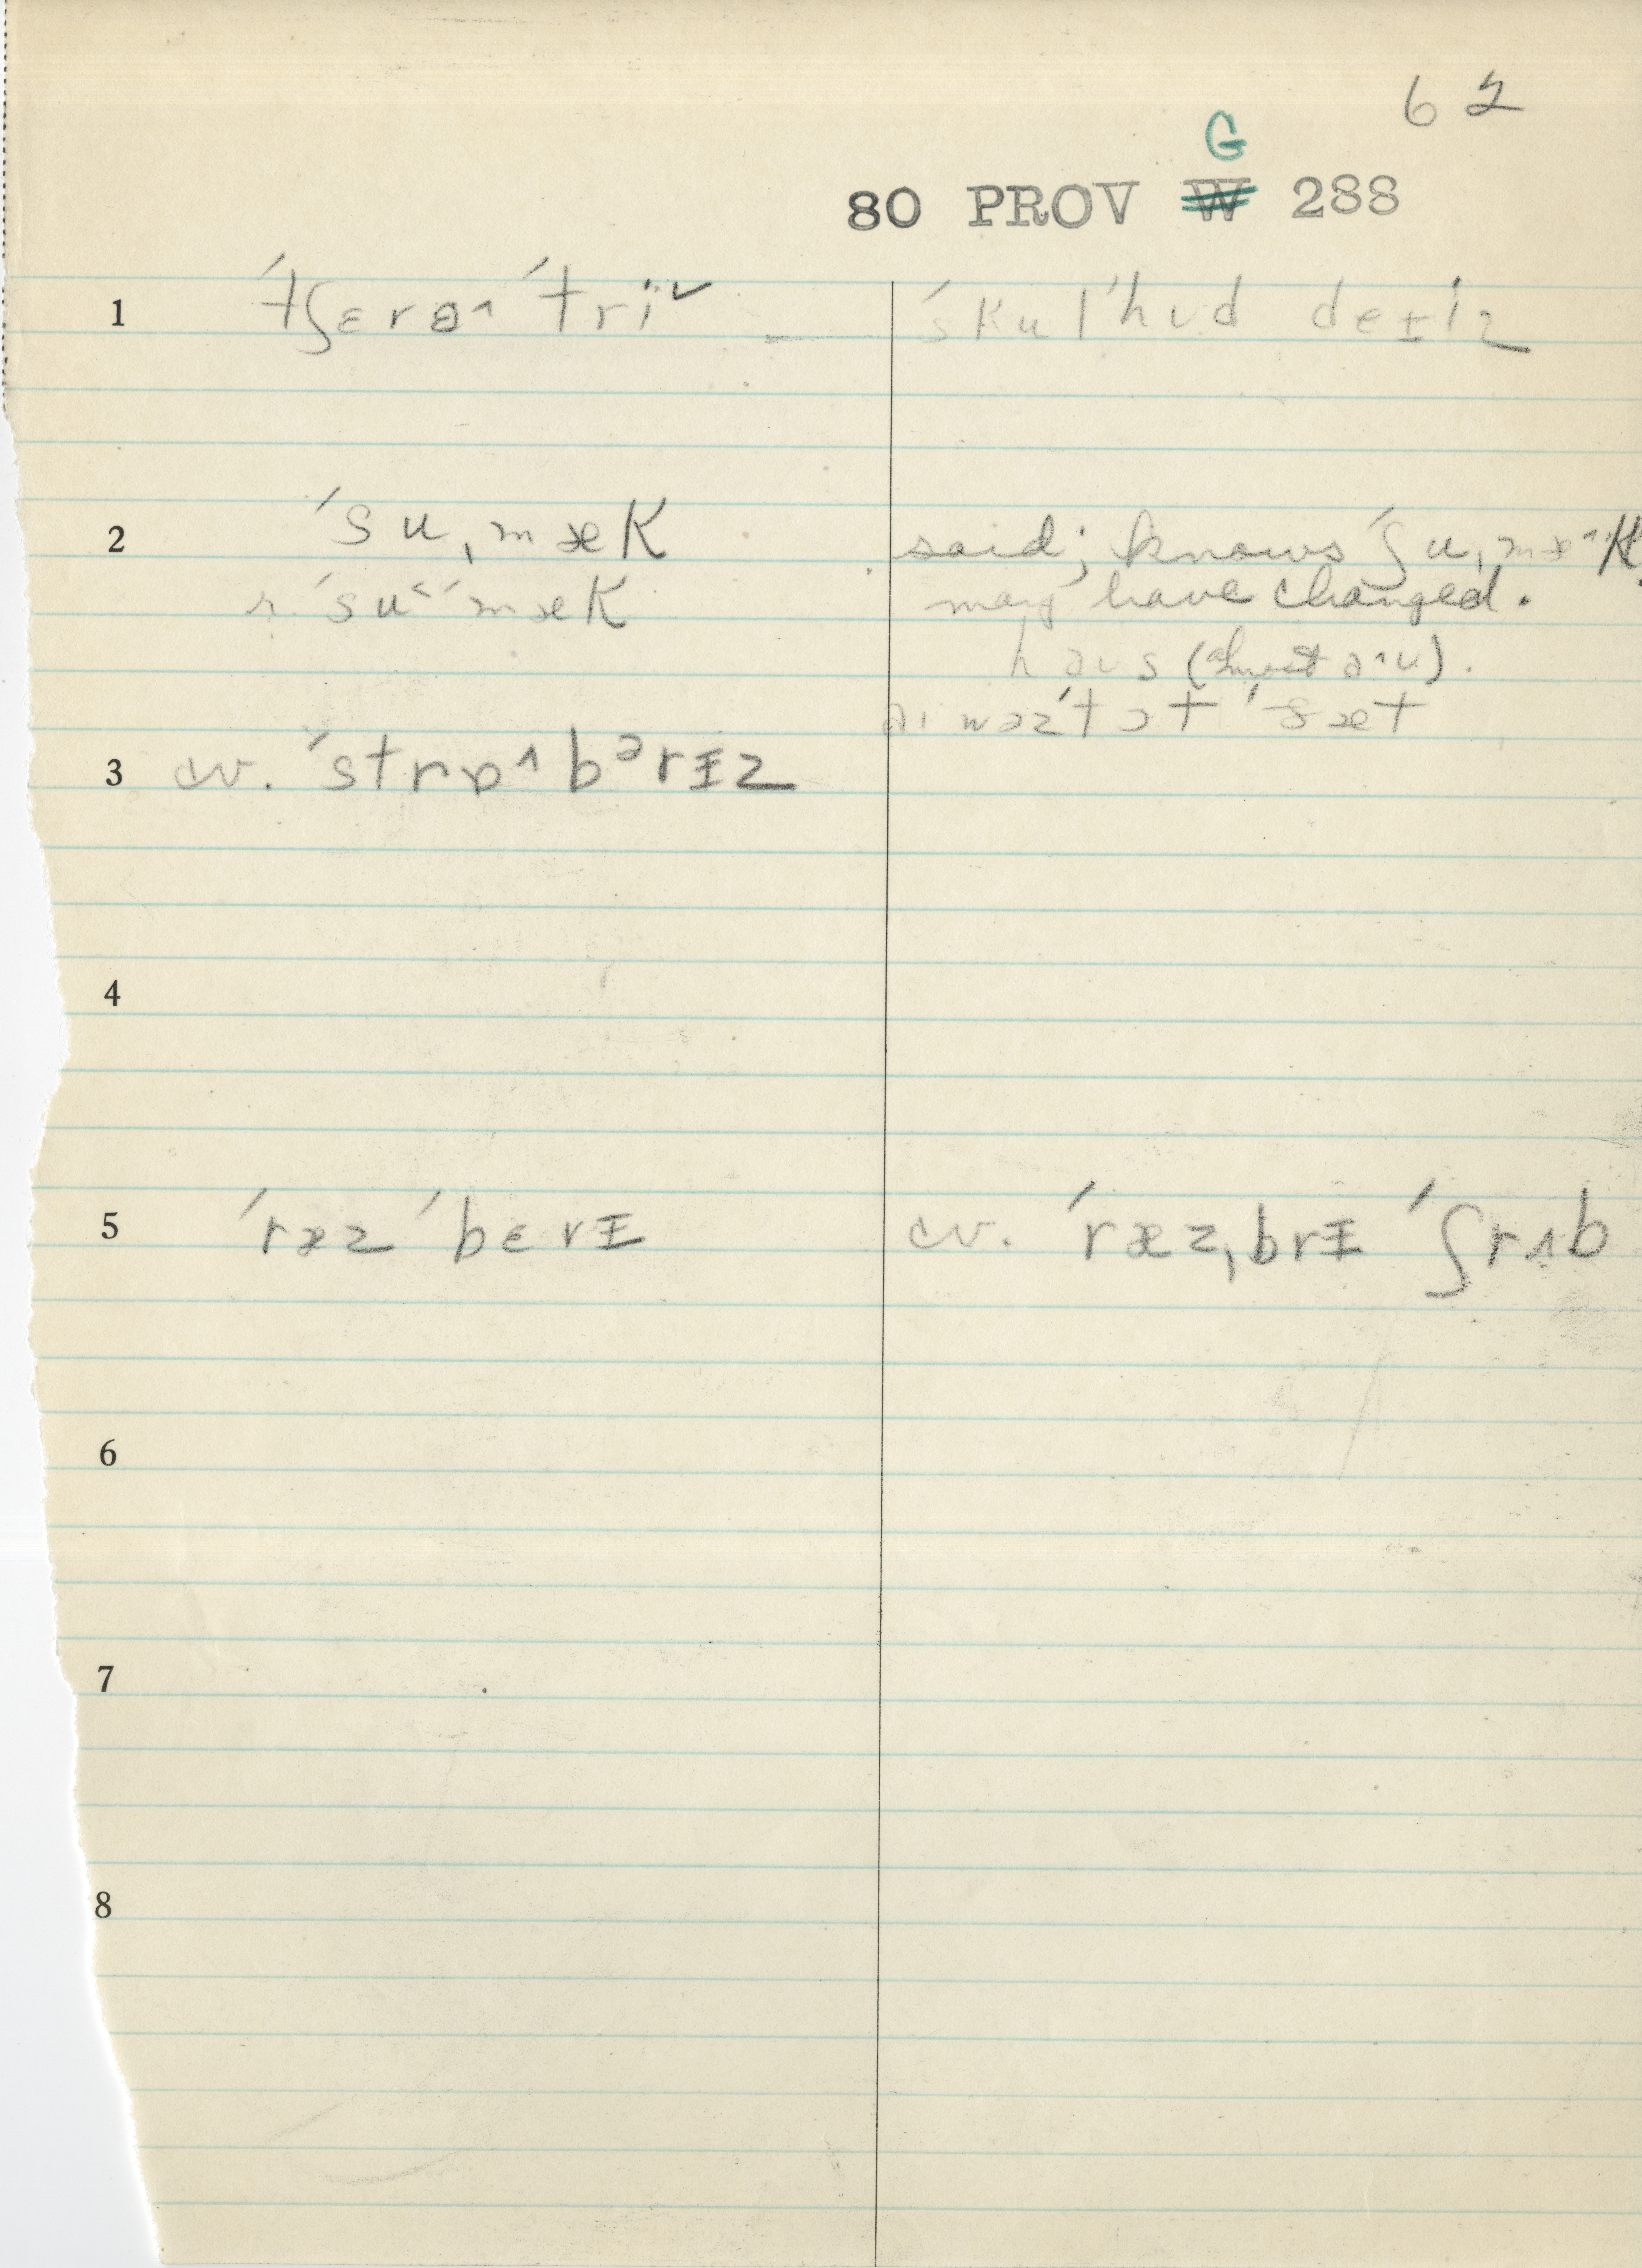 62
G
80 PROV W 288
1 ˈtʃɛrə^ ˈtri˅ ˈskulˈhʊd deɪiz
2 ˈsuˌmæk said; knows ˈʃuˌmæ^k
r. ˈsu˂ˈmæk may have changed.
haʊs (almost ə^ʊ).
ˈsæt
3 cv. ˈstrɒ^bᵊrɪz
4
5 ˈræz ˈbɛrɪ cv. ˈræzˌbrɪ ˈʃrʌb
6
7
8